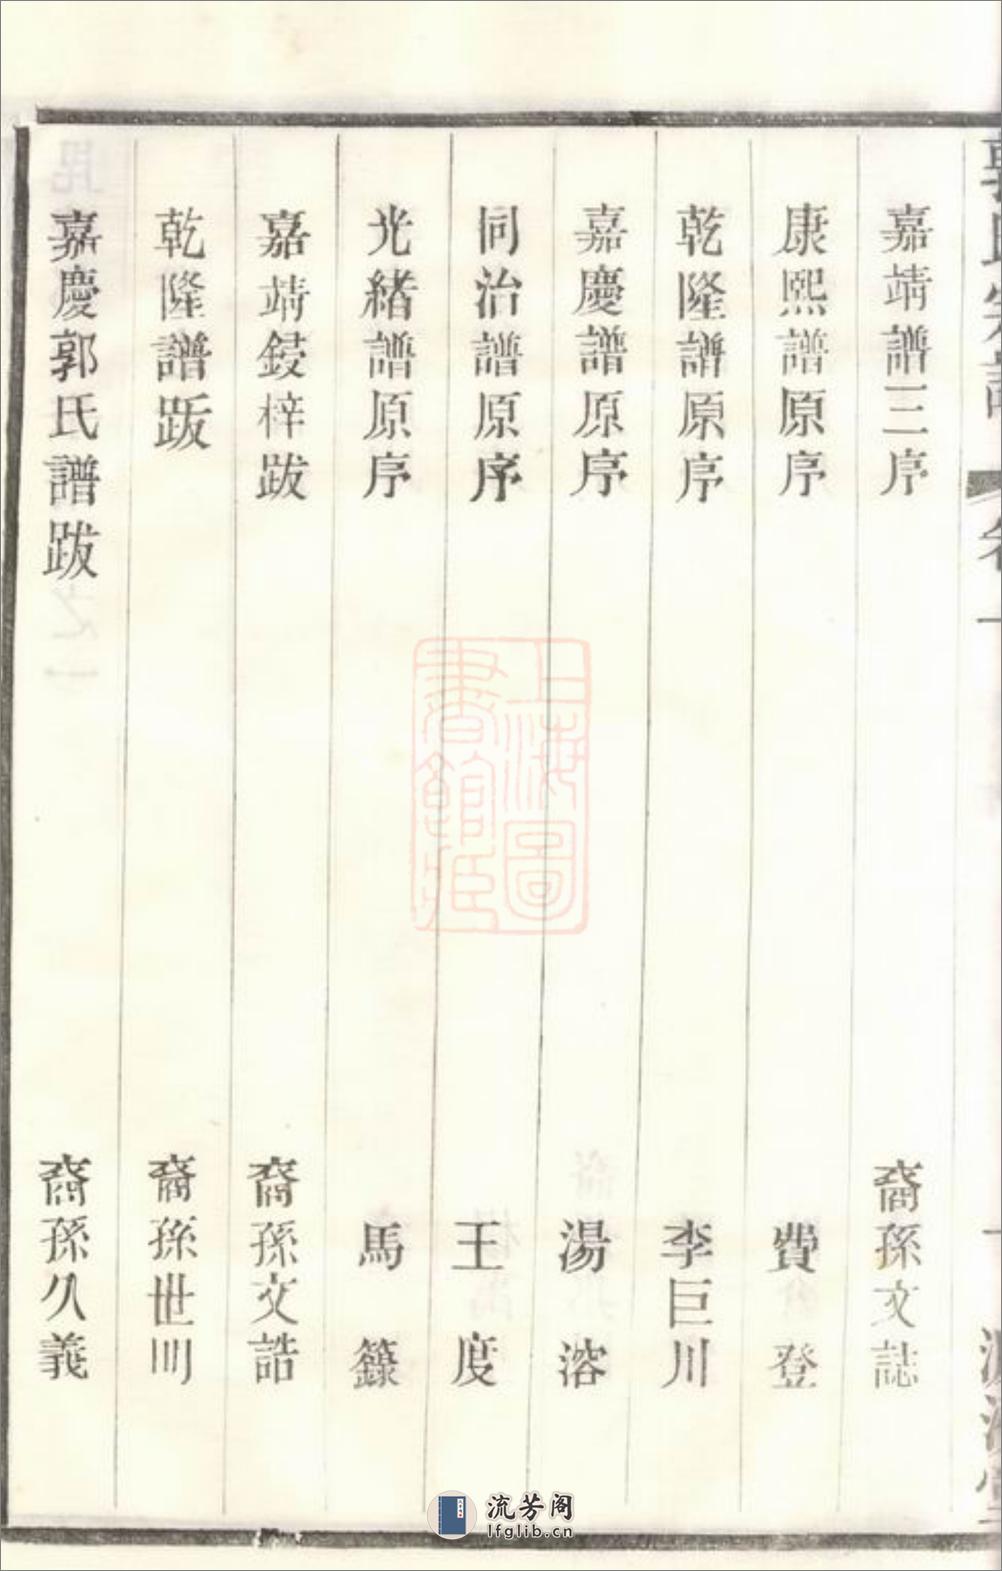 郭氏宗譜 卷一
嘉靖譜三序 裔孫文誌
康熙譜原序 費登
乾隆譜原序 李巨川
嘉慶譜原序 湯溶
同治譜原序 王度
光緒譜原序 馬籙
嘉靖鋟梓跋 裔孫文誥
乾隆譜跋 裔孫世
嘉慶郭氏譜跋 裔孫久義
上海圖書館藏
流芳阁
lfglib.cn